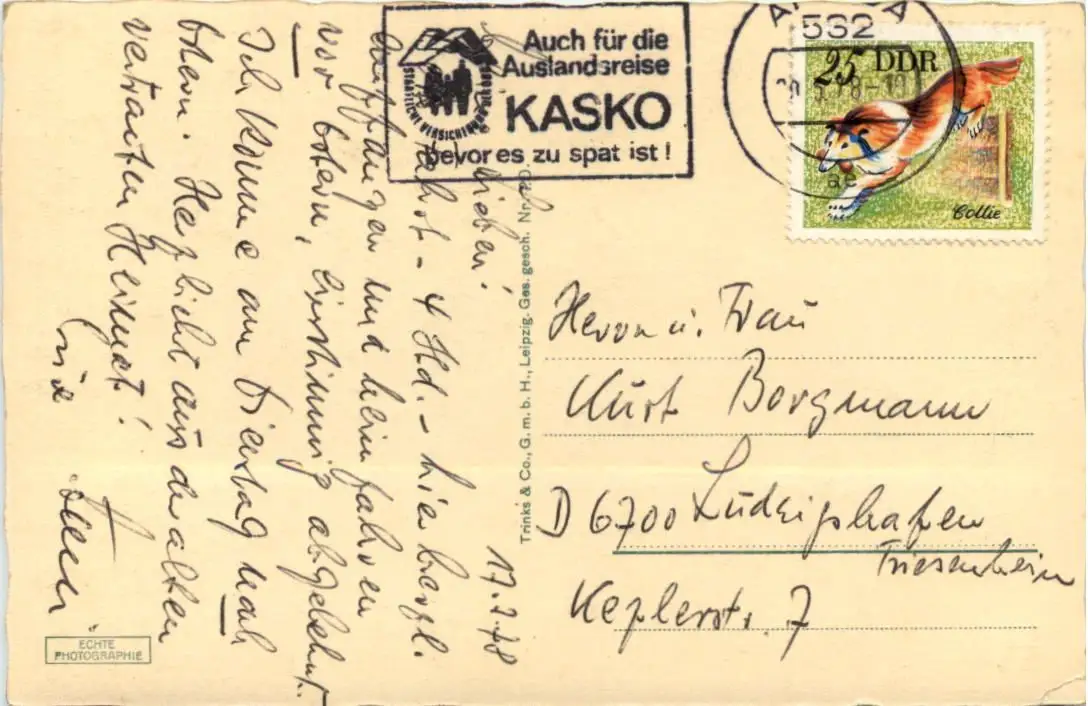 Auch für die
Auslandsreise
KASKO
bevor es zu spät ist!
STAATLICHE VERSICHERUNG DER DDR
532
25 DDR
Collie
17.3.78
Lieben!
4 Std. - hier herzl.
empfangen und beim fahren
vor Ostern, einstimmig abgelehnt.
Ich komme am Feiertag nach
Ostern. Herzlichst aus der alten
vertrauten Heimat!
Trinks & Co., G. m. b. H., Leipzig. Ges. gesch. Nr.
Herrn u. Frau
Kurt Borgmann
D 6700 Ludwigshafen
Friesenheim
Keplerstr. 7
ECHTE
PHOTOGRAPHIE